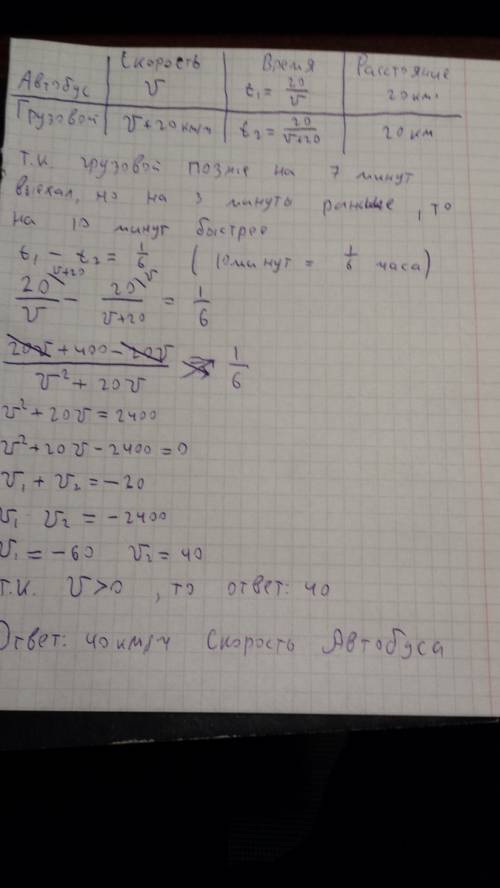 Скорость Время Расстояние
Автобус v t₁ = 20/v 20 км
Грузовой v+20 км/ч t₂ = 20/(v+20) 20 км
т.к. грузовой позже на 7 минут
выехал, но на 3 минуты раньше, то
на 10 минут быстрее
t₁ - t₂ = 1/6 (10 минут = 1/6 часа)
20/v - 20/(v+20) = 1/6
(20v + 400 - 20v)/(v² + 20v) = 1/6
v² + 20v = 2400
v² + 20v - 2400 = 0
v₁ + v₂ = -20
v₁ v₂ = -2400
v₁ = -60 v₂ = 40
т.к. v>0, то ответ: 40
Ответ: 40 км/ч Скорость Автобуса